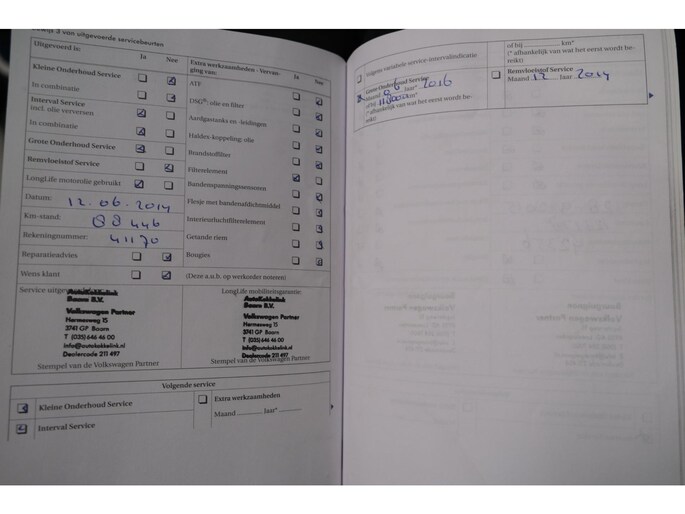 van uitgevoerde servicebeurten
Uitgevoerd is: Ja Nee
Kleine Onderhoud Service
In combinatie
Interval Service
incl. olie verversen
In combinatie
Grote Onderhoud Service
Remvloeistof Service
LongLife motorolie gebruikt
Datum: 12.06.2014
Km-stand: 88 446
Rekeningnummer: 41170
Reparatieadvies
Wens klant
Extra werkzaamheden - Vervan-
ging van: Ja Nee
ATF
DSG®: olie en filter
Aardgastanks en -leidingen
Haldex-koppeling: olie
Brandstoffilter
Filterelement
Bandenspanningssensoren
Flesje met bandenafdichtmiddel
Interieurluchtfilterelement
Getande riem
Bougies
(Deze a.u.b. op werkorder noteren)
Service uitgevoerd
AutoKokkelink
Baarn B.V.
Volkswagen Partner
Hermesweg 15
3741 GP Baarn
T (035) 646 46 00
info@autokokkelink.nl
Dealercode 211 497
Stempel van de Volkswagen Partner
LongLife mobiliteitsgarantie:
AutoKokkelink
Baarn B.V.
Volkswagen Partner
Hermesweg 15
3741 GP Baarn
T (035) 646 46 00
info@autokokkelink.nl
Dealercode 211 497
Stempel van de Volkswagen Partner
Volgende service
Kleine Onderhoud Service
Interval Service
Extra werkzaamheden
Maand ............ Jaar* ............
volgens variabele service-intervalindicatie
Grote Onderhoud Service
Maand 06 Jaar* 2016
of bij km*
(* afhankelijk van wat het eerst wordt be-
reikt)
of bij ............ km*
(* afhankelijk van wat het eerst wordt be-
reikt)
Remvloeistof Service
Maand 12 Jaar 2014